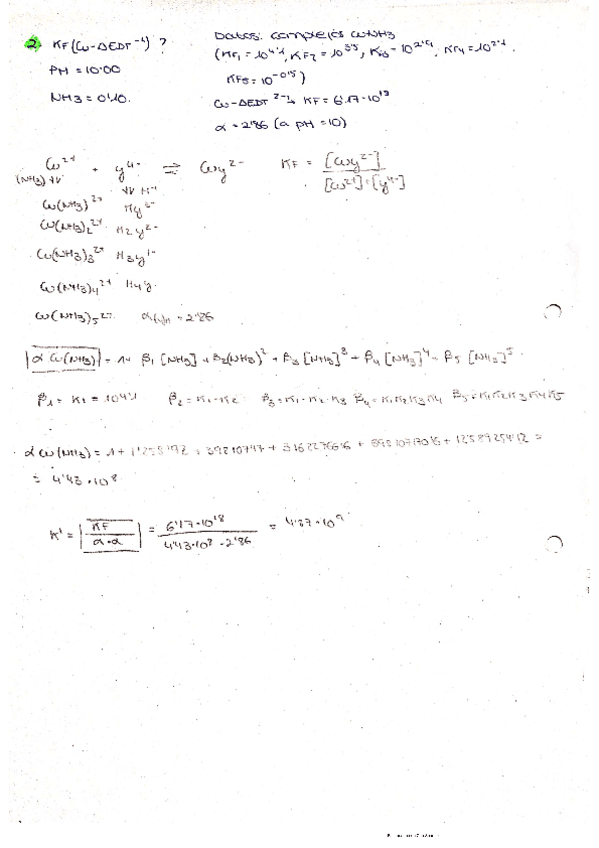 2. KF (Cu-DEDT⁻⁴) ?
PH = 10'00
NH3 = 0'10.
Datos: complejos Cu-NH3
(KF1 = 10^4'1, KF2 = 10^3'5, KF3 = 10^2'9, KF4 = 10^2'1.
KF5 = 10^-0'5)
Cu-DEDT²⁻ KF = 6'17·10^18
α = 2'86 (a pH = 10)
Cu²⁺ + y⁴⁻ ⇌ Cuy²⁻ KF = [Cuy²⁻] / [Cu²⁺]·[y⁴⁻]
(NH3)
Cu(NH3)²⁺ Hy³⁻
Cu(NH3)₂²⁺ H2y²⁻
Cu(NH3)₃²⁺ H3y¹⁻
Cu(NH3)₄²⁺ H4y
Cu(NH3)₅²⁺ α(y)H = 2'86
α Cu(NH3) = 1+ β1 [NH3] + β2(NH3)² + β3 [NH3]³ + β4 [NH3]⁴ + β5 [NH3]⁵
β1 = K1 = 10^4'1 β2 = K1·K2 β3 = K1·K2·K3 β4 = K1K2K3K4 β5 = K1K2K3K4K5
α Cu(NH3) = 1 +
= 4'43·10⁸
K' = KF / α·α = 6'17·10^18 / 4'43·10⁸·2'86 = 4'87·10⁹